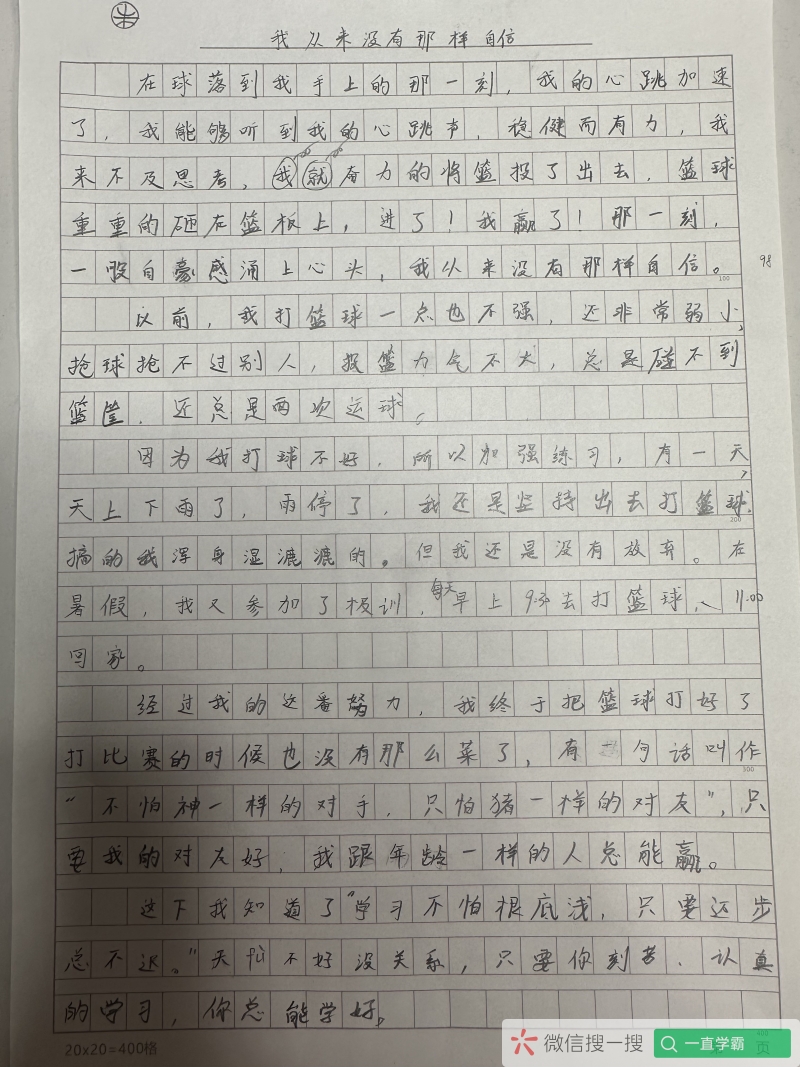 我从来没有那样自信
在球落到我手上的那一刻，我的心跳加速
了，我能够听到我的心跳声，稳健而有力，我
来不及思考，我就奋力的将篮投了出去，篮球
重重的砸在篮板上，进了！我赢了！那一刻，
一股自豪感涌上心头，我从来没有那样自信。
98
100
以前，我打篮球一点也不强，还非常弱小，
抢球抢不过别人，投篮力气不大，总是碰不到
篮筐，还总是两次运球。
因为我打球不好，所以加强练习，有一天，
天上下雨了，雨停了，我还是坚持出去打篮球，
200
搞的我浑身湿漉漉的。但我还是没有放弃。在
暑假，我又参加了极训，每天早上9:30去打篮球、11:00
回家。
经过我的这番努力，我终于把篮球打好了
打比赛的时候也没有那么菜了，有一句话叫作
300
“不怕神一样的对手，只怕猪一样的对友”，只
要我的对友好，我跟年龄一样的人总能赢。
这下我知道了“学习不怕根底浅，只要迈步
总不迟。”天仙不好没关系，只要你刻苦、认真
的学习，你总能学好。
20x20=400格
400
页
微信搜一搜
一直学霸